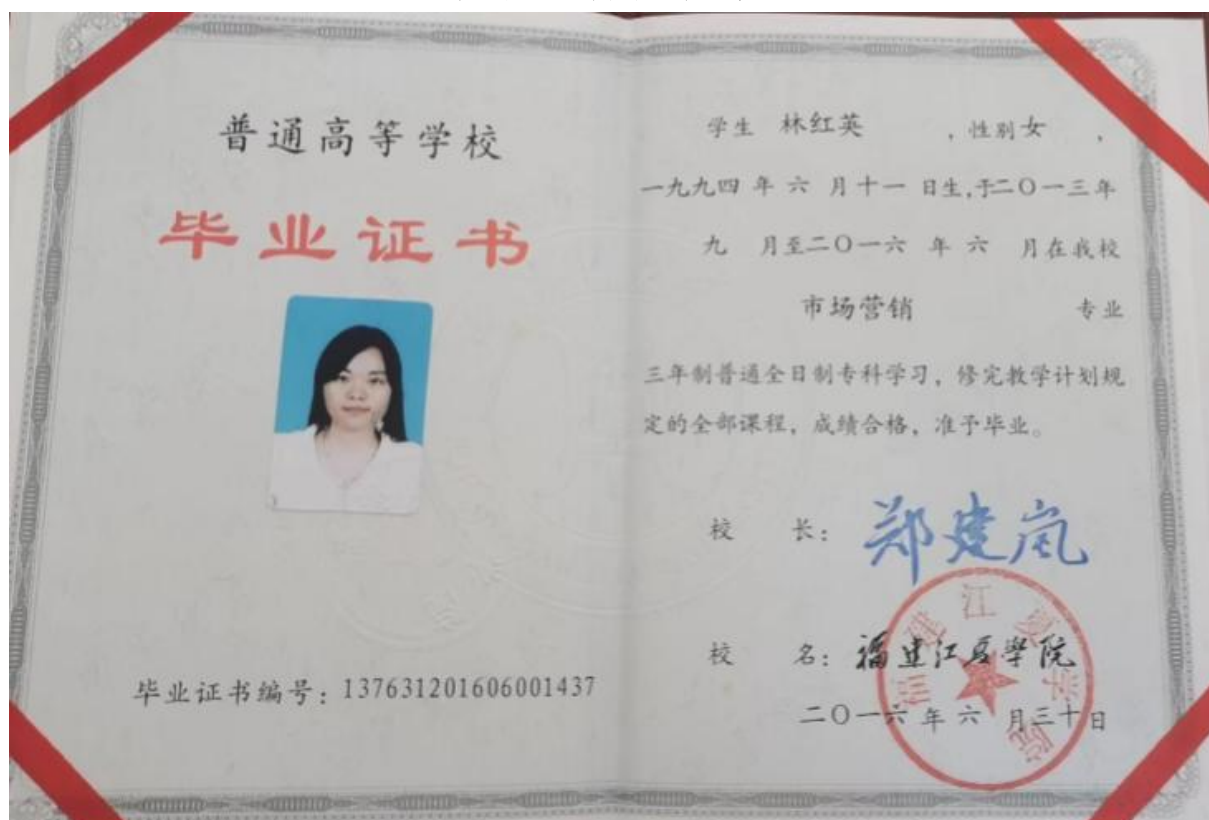 普通高等学校
毕业证书
毕业证书编号：137631201606001437
学生 林红英 ，性别 女 ，
一九九四 年 六 月 十一 日生，于二〇一三年
九 月至二〇一六 年 六 月在我校
市场营销 专业
三年制普通全日制专科学习，修完教学计划规
定的全部课程，成绩合格，准予毕业。
校 长：郑建岚
校 名：福建江夏學院
二〇一六 年 六 月三十日
福建江夏学院